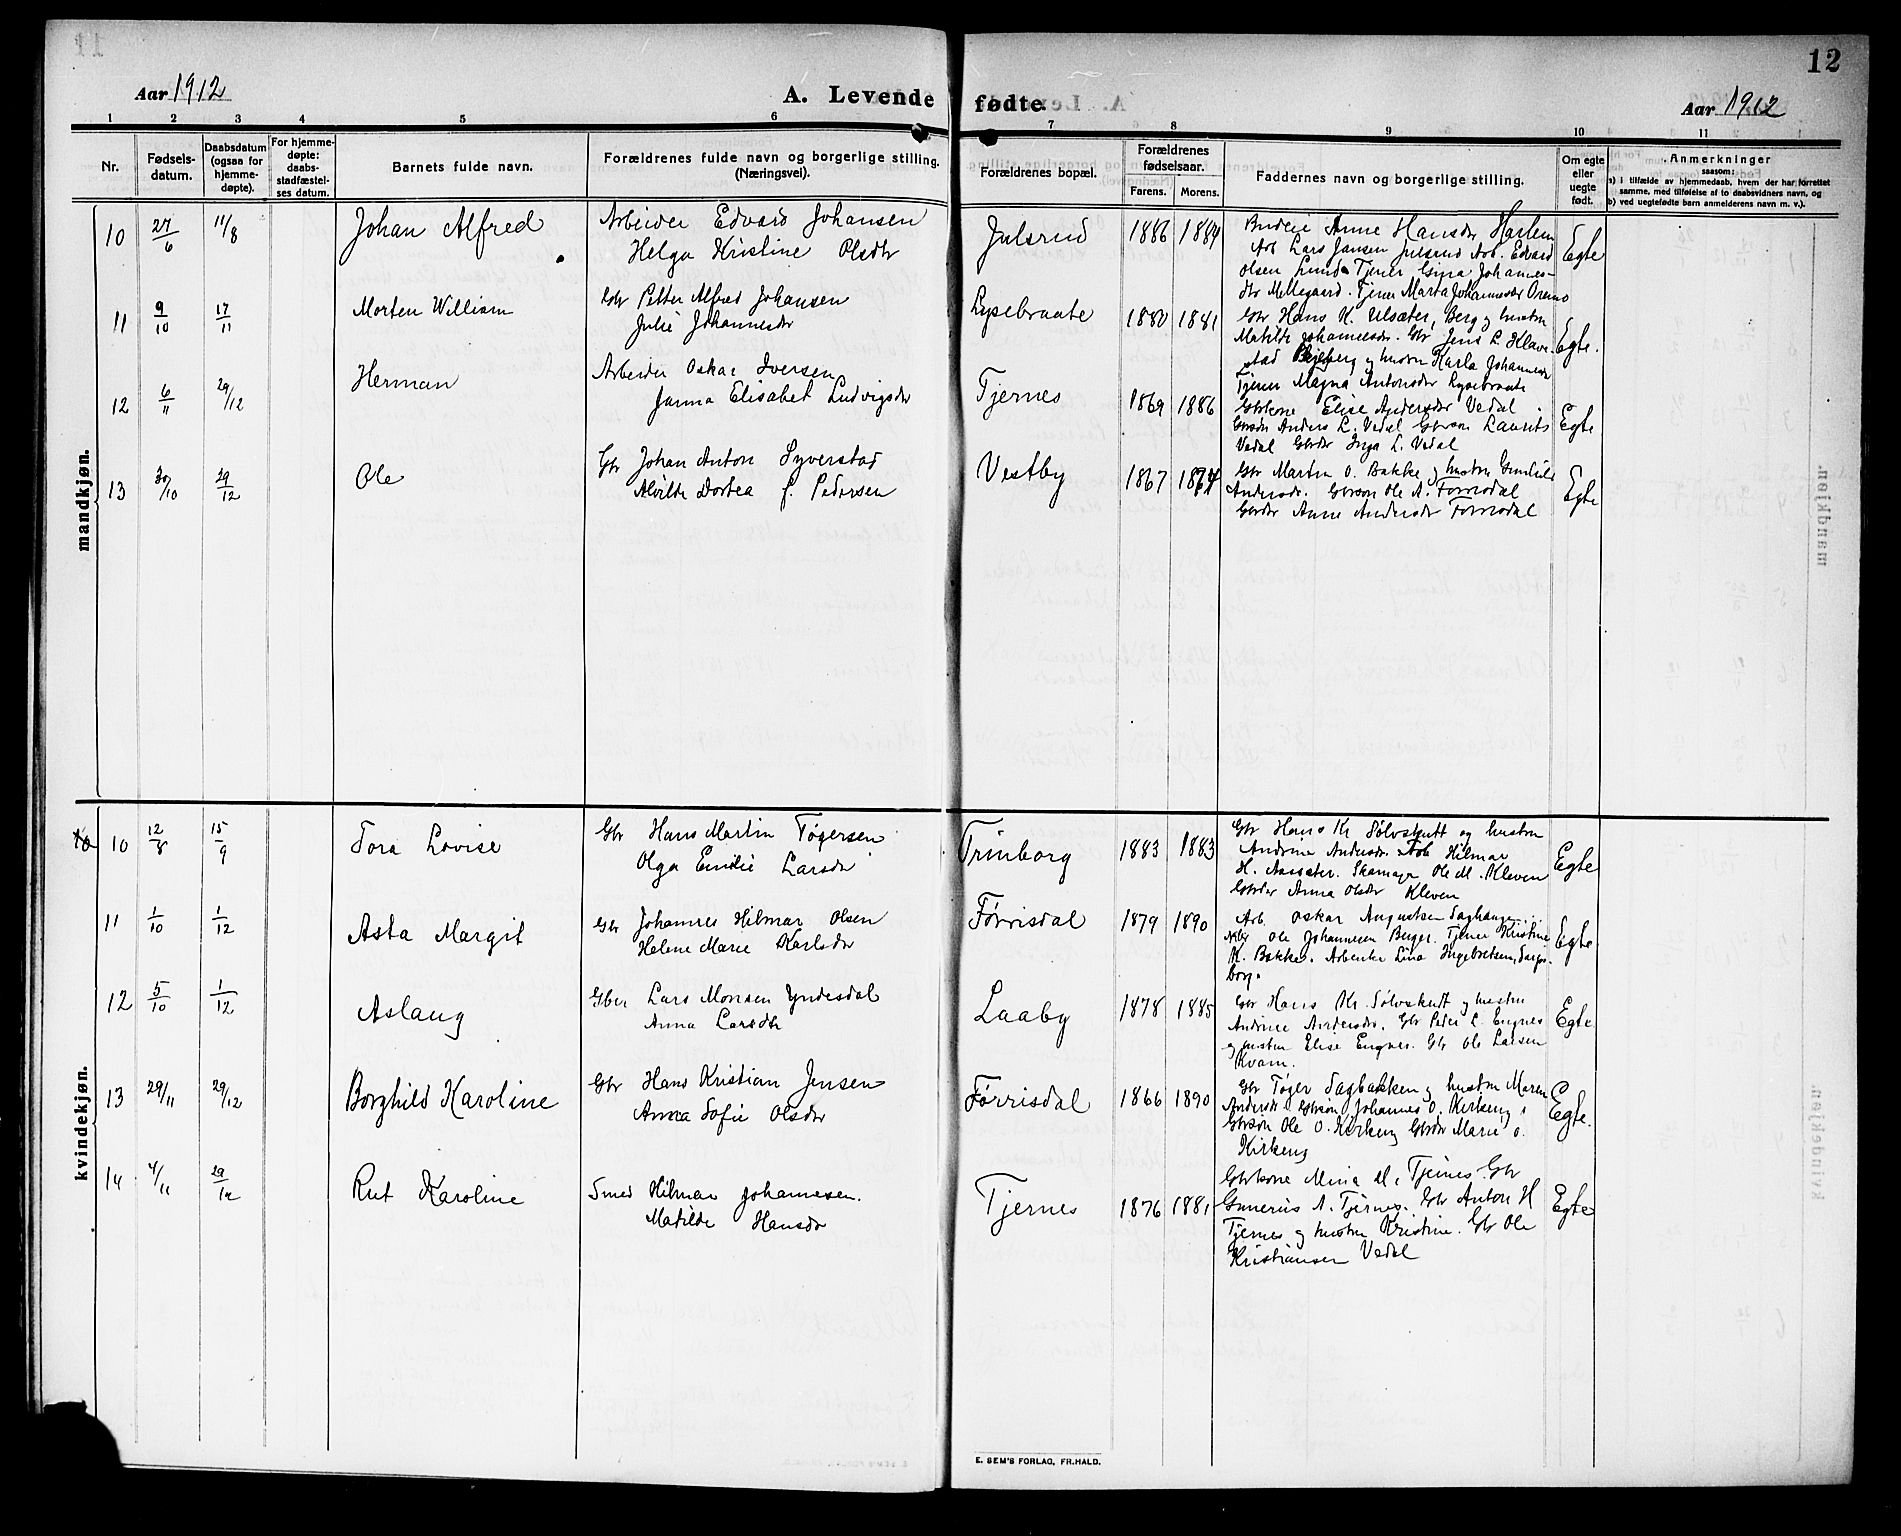 12
Aar 1912
A. Levende fødte.
Aar 1912
1 2 3 4 5 6 7 8 9 10 11
Nr.
Fødsels-
datum.
Daabsdatum
(ogsaa for
hjemme-
døpte).
For hjemme-
døpte:
daabs-
stadfæstel-
ses datum.
Barnets fulde navn.
Forældrenes fulde navn og borgerlige stilling.
(Næringsvei).
Forældrenes bopæl.
Forældrenes
fødselsaar.
Farens. Morens.
Faddernes navn og borgerlige stilling.
Om egte
eller
uegte
født.
Anmerkninger
saasom:
a) i tilfælde av hjemmedaab, hvem der har forrettet
samme, med tilføielse af to daabsvidners navn, og
b) ved uegtefødte barn anmelderens navn m. v.).
mandkjøn.
10 27/6 11/8 Johan Alfred
Arbeider Edvard Johansen
Helga Kristine Olsdtr
Julsrud 1886 1884
Budeie Anne Hansdr Harlem
Arb Lars Jansen Julsrud Arb. Edvard
Olsen Lunde Tjener Gina Johannes-
dtr Mellegaard. Tjener Marta Johannesdr Oremo
Egte
11 9/10 17/11 Morten William
Gbr Petter Alfred Johansen
Julie Johannesdr
Lysebraate 1880 1881
Gbr Hans K. Ulsæter, Berg og hustru
Matilde Johannesdr. Gbr Jens L. Klave-
stad Skjeberg og hustru Karla Johannesdr
Tjener Magna Antonsdr Lysebraate
Egte.
12 6/11 29/12 Herman
Arbeider Oskar Iversen
Janna Elisabet Ludvigsdr
Tjernes 1869 1886
Gbrkone Elise Andersdr Vedal
Gbrsøn Anders L. Vedal Gbrsøn Laurits
Vedal Gbrdr Inga L. Vedal
Egte
13 30/10 29/12 Ole
Gbr Johan Anton Syverstad
Alvilde Dortea f. Pedersen
Vestby 1867 1874
Gbr Martin O. Bakke og hustru Gunhild
Andersdr. Gbrsøn Ole A. Førrisdal
Gbrdr Anne Andersdr Førrisdal
Egte
kvindekjøn.
10 12/8 15/9 Tora Lovise
Gbr Hans Martin Tøgersen
Olga Emilie Larsdr
Trinborg 1883 1883
Gbr Hans Kr Sølvskutt og hustru
Andrine Andersdr. Arb Hilmar
H. Aarsæter. Skomager Ole M. Kleven
Gbrdr Anna Olsdr Kleven
Egte
11 1/10 1/12 Asta Margit
Gbr Johannes Hilmar Olsen
Helene Marie Karlsdr
Førrisdal 1879 1890
Arb. Oskar Augustsen Saghaugen
Ole Johannesen Berger. Tjener Kristine
K. Bakke. Arbeiderske Lina Ingebretsen, Sarps-
borg.
Egte
12 5/10 1/12 Aslaug
Gber Lars Monsen Yndesdal
Anna Larsdtr
Laaby 1878 1885
Gbr Hans Kr. Sølvskudt og hustru
Andrine Andersdr. Gbr Peder L. Engnes
og hustru Elise Engnes. Gbr Ole Larsen
Kvam.
Egte
13 29/11 29/12 Borghild Karoline
Gbr Hans Kristian Jensen
Anna Sofie Olsdr
Førrisdal 1866 1890
Gbr Tøger Sagbakken og hustru Maren
Andersdr. Gbrsøn Johannes O. Kirkeng
Gbrsøn Ole O. Kirkeng Gbrdr Marie O.
Kirkeng
Egte.
14 4/11 29/12 Rut Karoline
Smed Hilmar Johannesen.
Matilde Hansdr
Tjernes 1876 1881
Gbrkone Mina M. Tjernes. Gbr
Gunerius A. Tjernes. Gbr Anton H
Tjernes og hustru Kristine. Gbr Ole
Kristiansen Vedal
Egte
E. SEM'S FORLAG, FR.HALD.